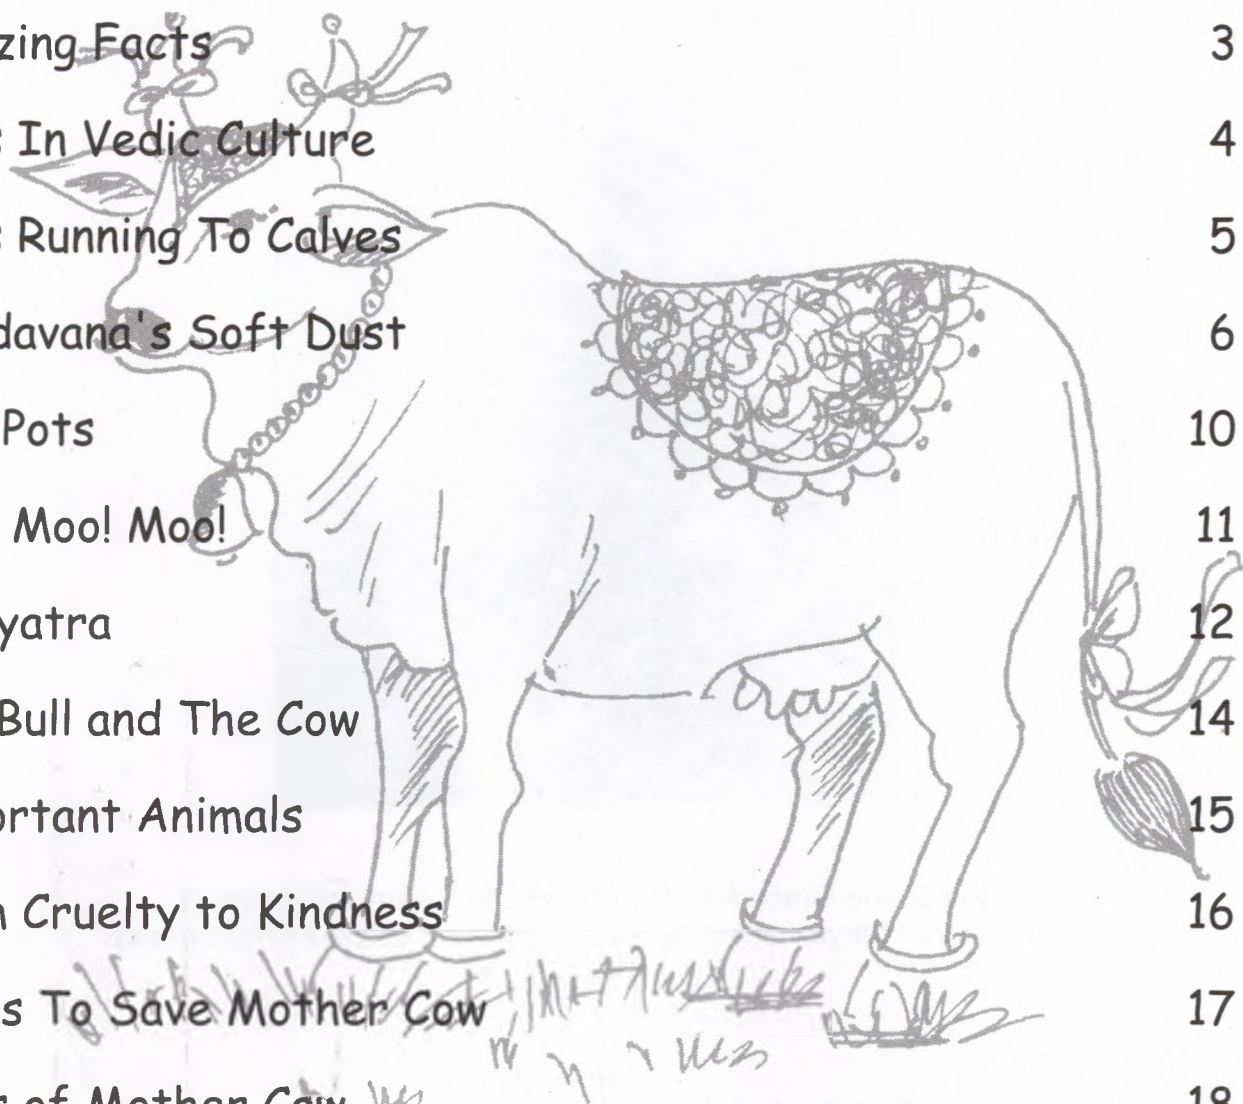 zing Facts 3
In Vedic Culture 4
Running To Calves 5
davana's Soft Dust 6
Pots 10
Moo! Moo! 11
yatra 12
Bull and The Cow 14
ortant Animals 15
Cruelty to Kindness 16
s To Save Mother Cow 17
of Mother Cow 18